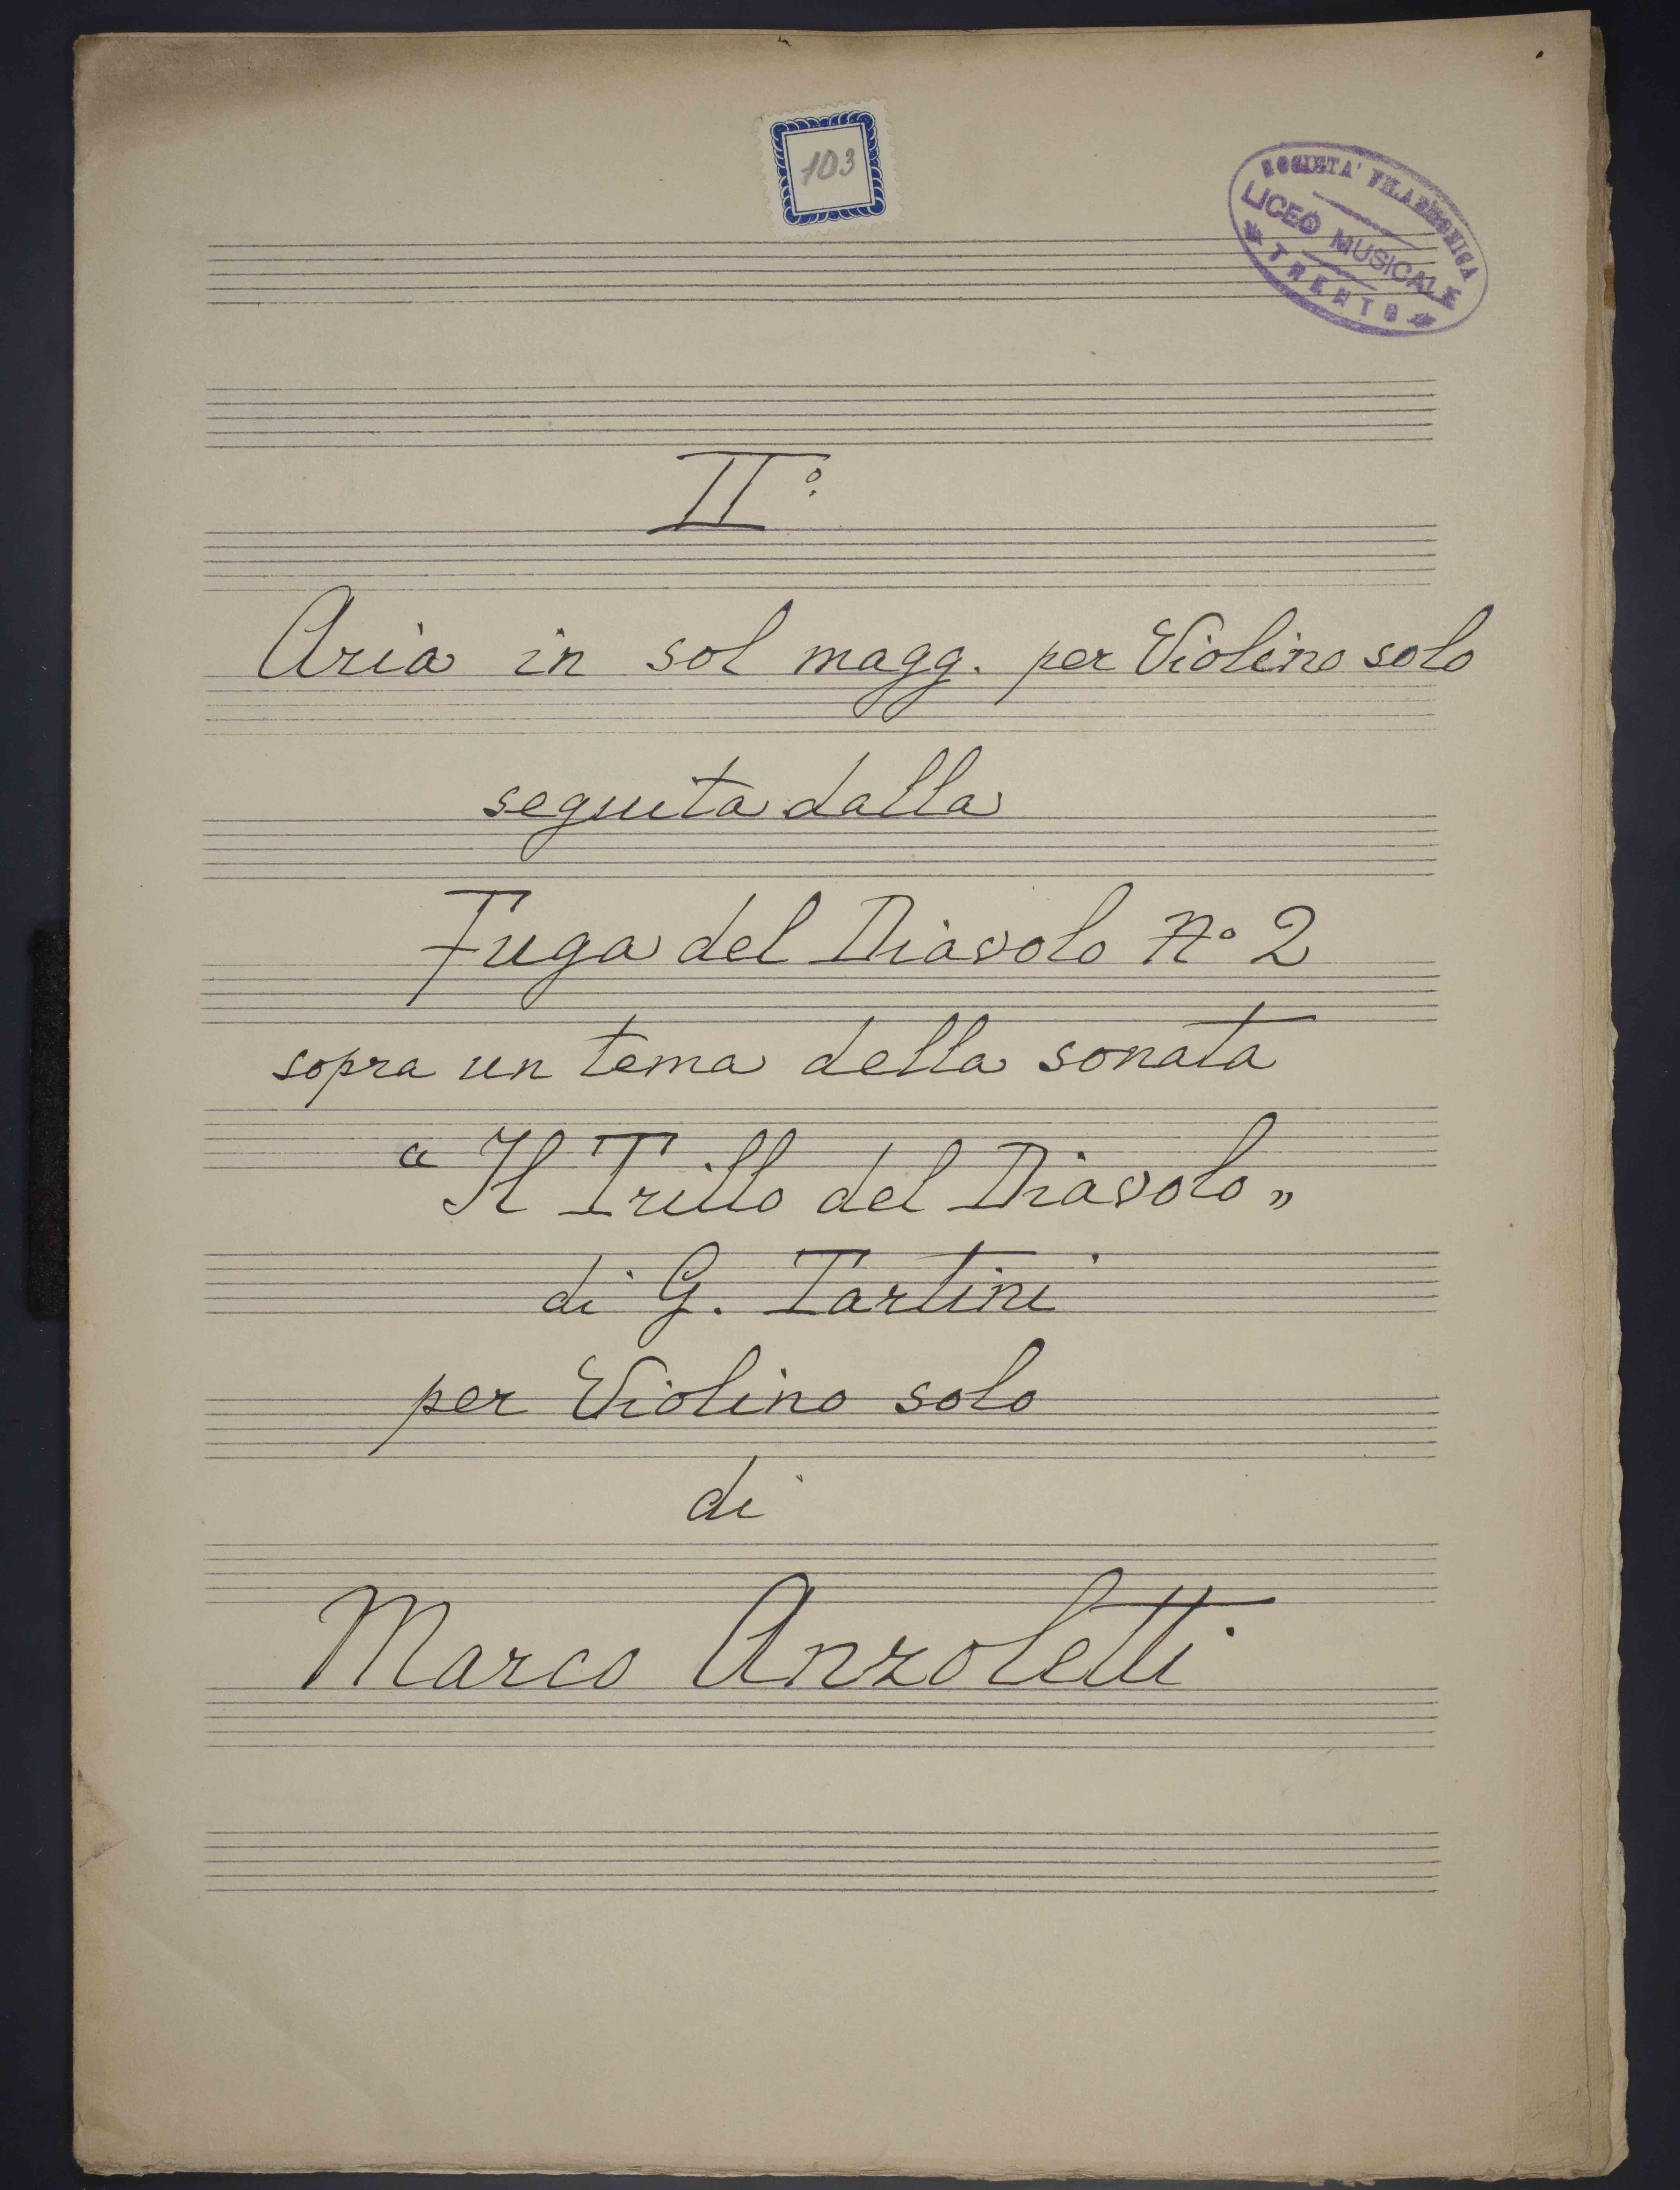 103
SOCIETA' FILARMONICA
LICEO MUSICALE
* TRENTO *
II°
Aria in sol magg. per Violino solo
seguita dalla
Fuga del Diavolo N° 2
sopra un tema della sonata
“ Il Trillo del Diavolo „
di G. Tartini
per Violino solo
di
Marco Anzoletti